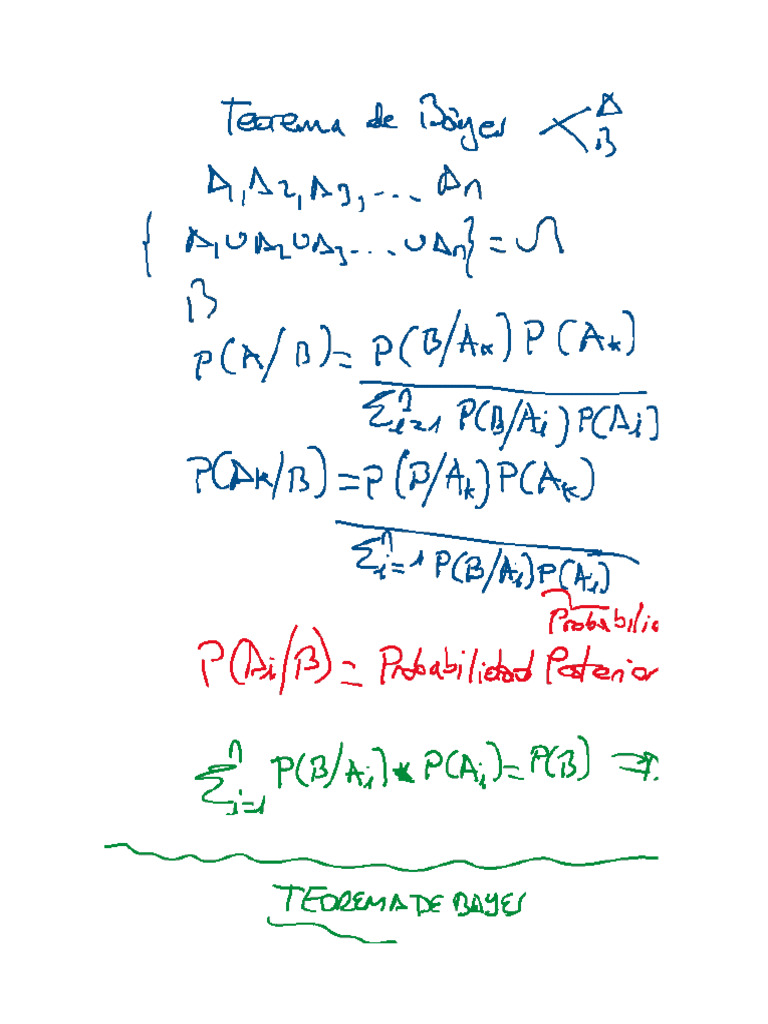 Teorema de Bayes < A B
A1, A2, A3, ... An
{ A1 ∪ A2 ∪ A3 ... ∪ An } = Ω
B
P(A/B) = P(B/Ak) P(Ak)
Σ^n i=1 P(B/Ai) P(Ai)
P(Ak/B) = P(B/Ak) P(Ak)
Σ^n i=1 P(B/Ai) P(Ai)
Probabilid
P(Ai/B) = Probabilidad Posterior
Σ^n i=1 P(B/Ai) * P(Ai) = P(B) →
TEOREMA DE BAYES